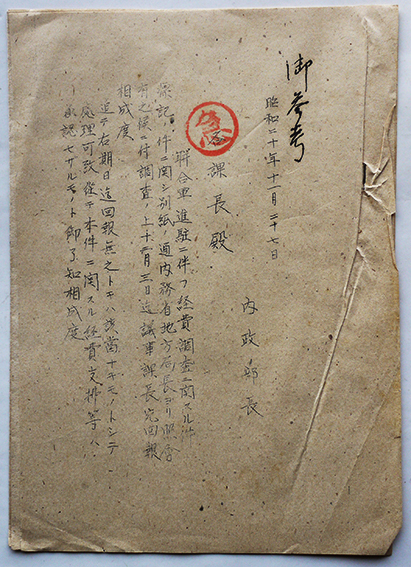 御参考
昭和二十年十一月二十七日
内政部長
課長殿
聯合軍進駐ニ伴フ経費調査ニ関スル件
標記ノ件ニ関シ別紙ノ通内務省地方局長ヨリ照会
有之候ニ付調査ノ上十二月三日迄議事課長宛回報
相成度
追テ右期日迄回報無之トキハ該当ナキモノトシテ
処理可致従テ本件ニ関スル経費支排等ハ
承認セサルモノト御了知相成度